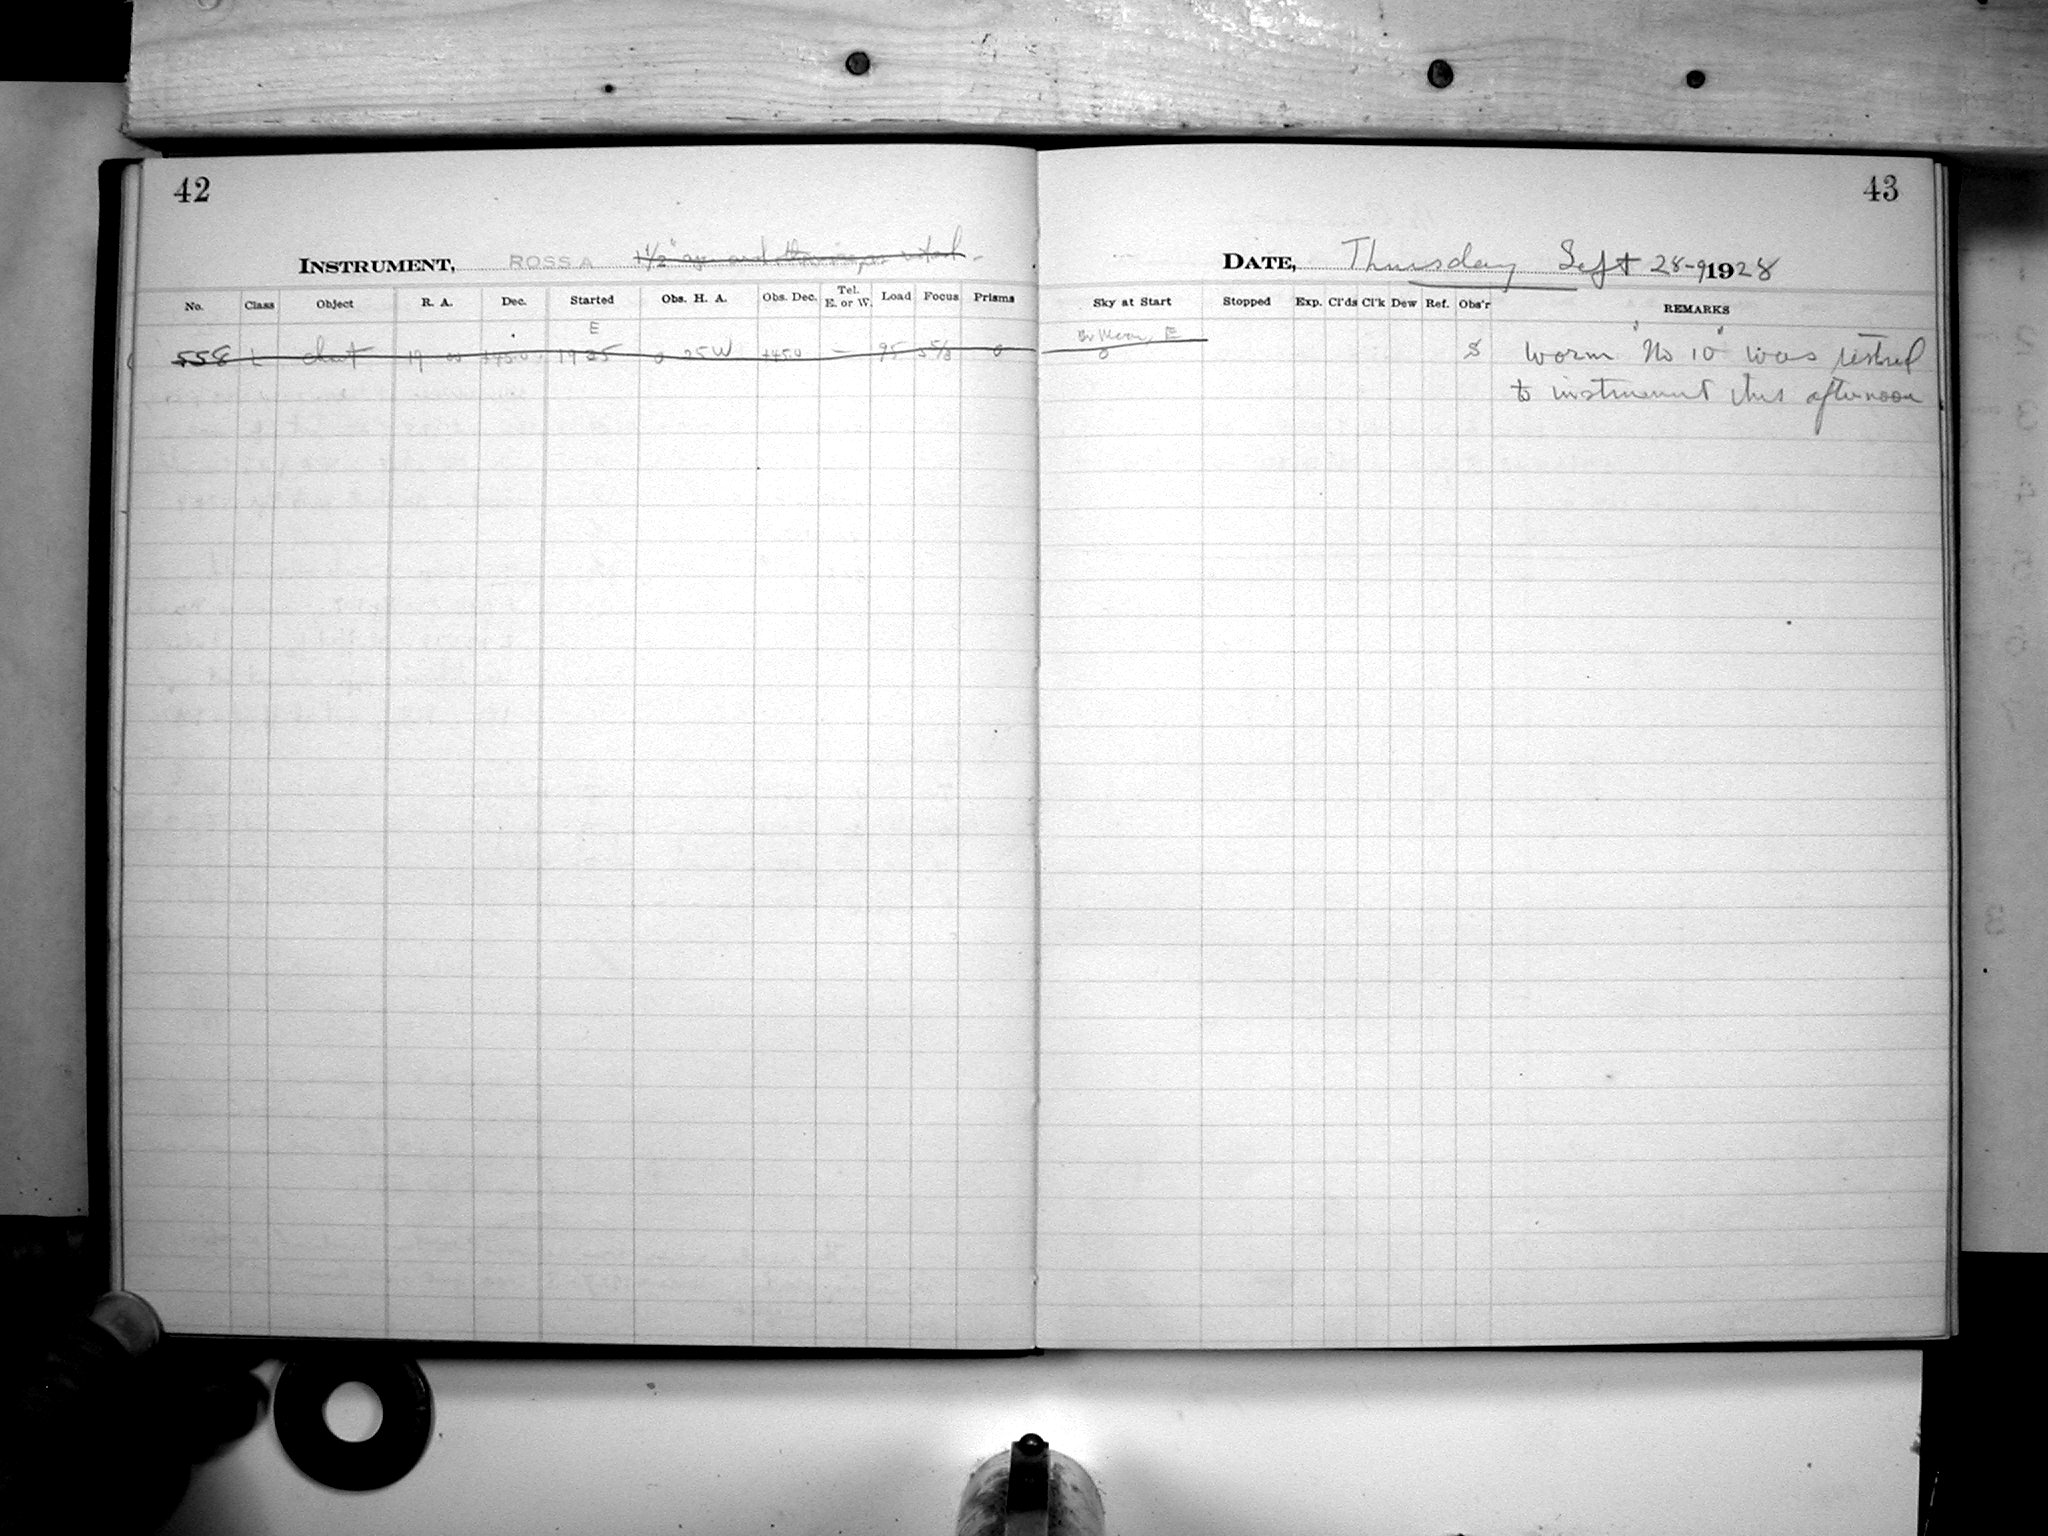 42
INSTRUMENT, ROSS A 1½"
No. Class Object R. A. Dec. Started Obs. H. A. Obs. Dec. Tel. E. or W. Load Focus Prisms
E
558 L chart 19 00 +45.0 19 25 0 25 W +45.0 — 95 5 5/8 0
43
DATE, Thursday Sept 28-9 1928
Sky at Start Stopped Exp. Cl'ds Cl'k Dew Ref. Obs'r REMARKS
Moon, E
0 S Worm "No 10" was
to instrument this afternoon